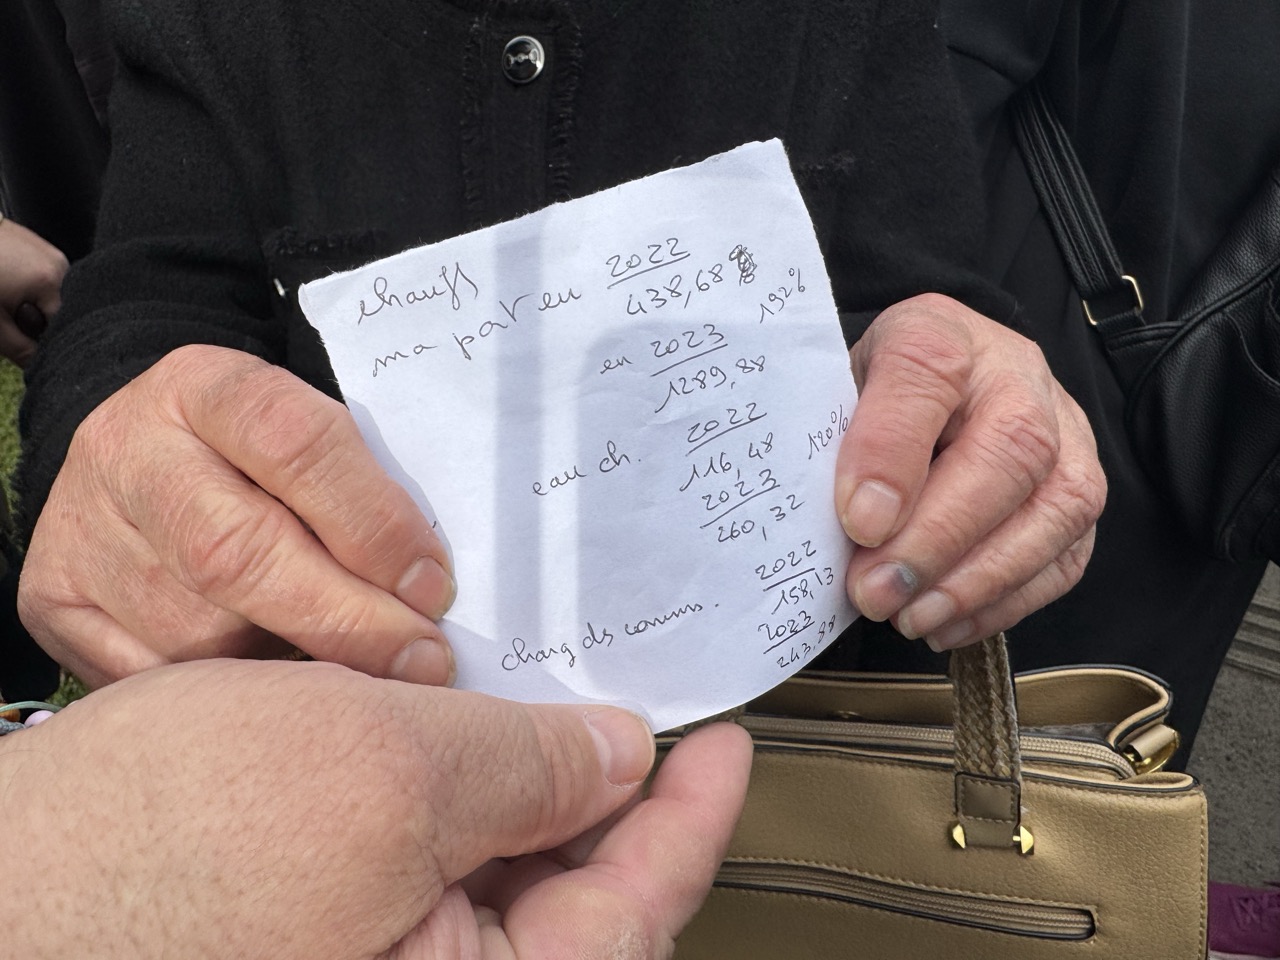 chauff
ma part en 2022
438,68
192%
en 2023
1289,88
eau ch. 2022
116,48
120%
2023
260,32
2022
158,13
charg ds comms. 2023
243,88